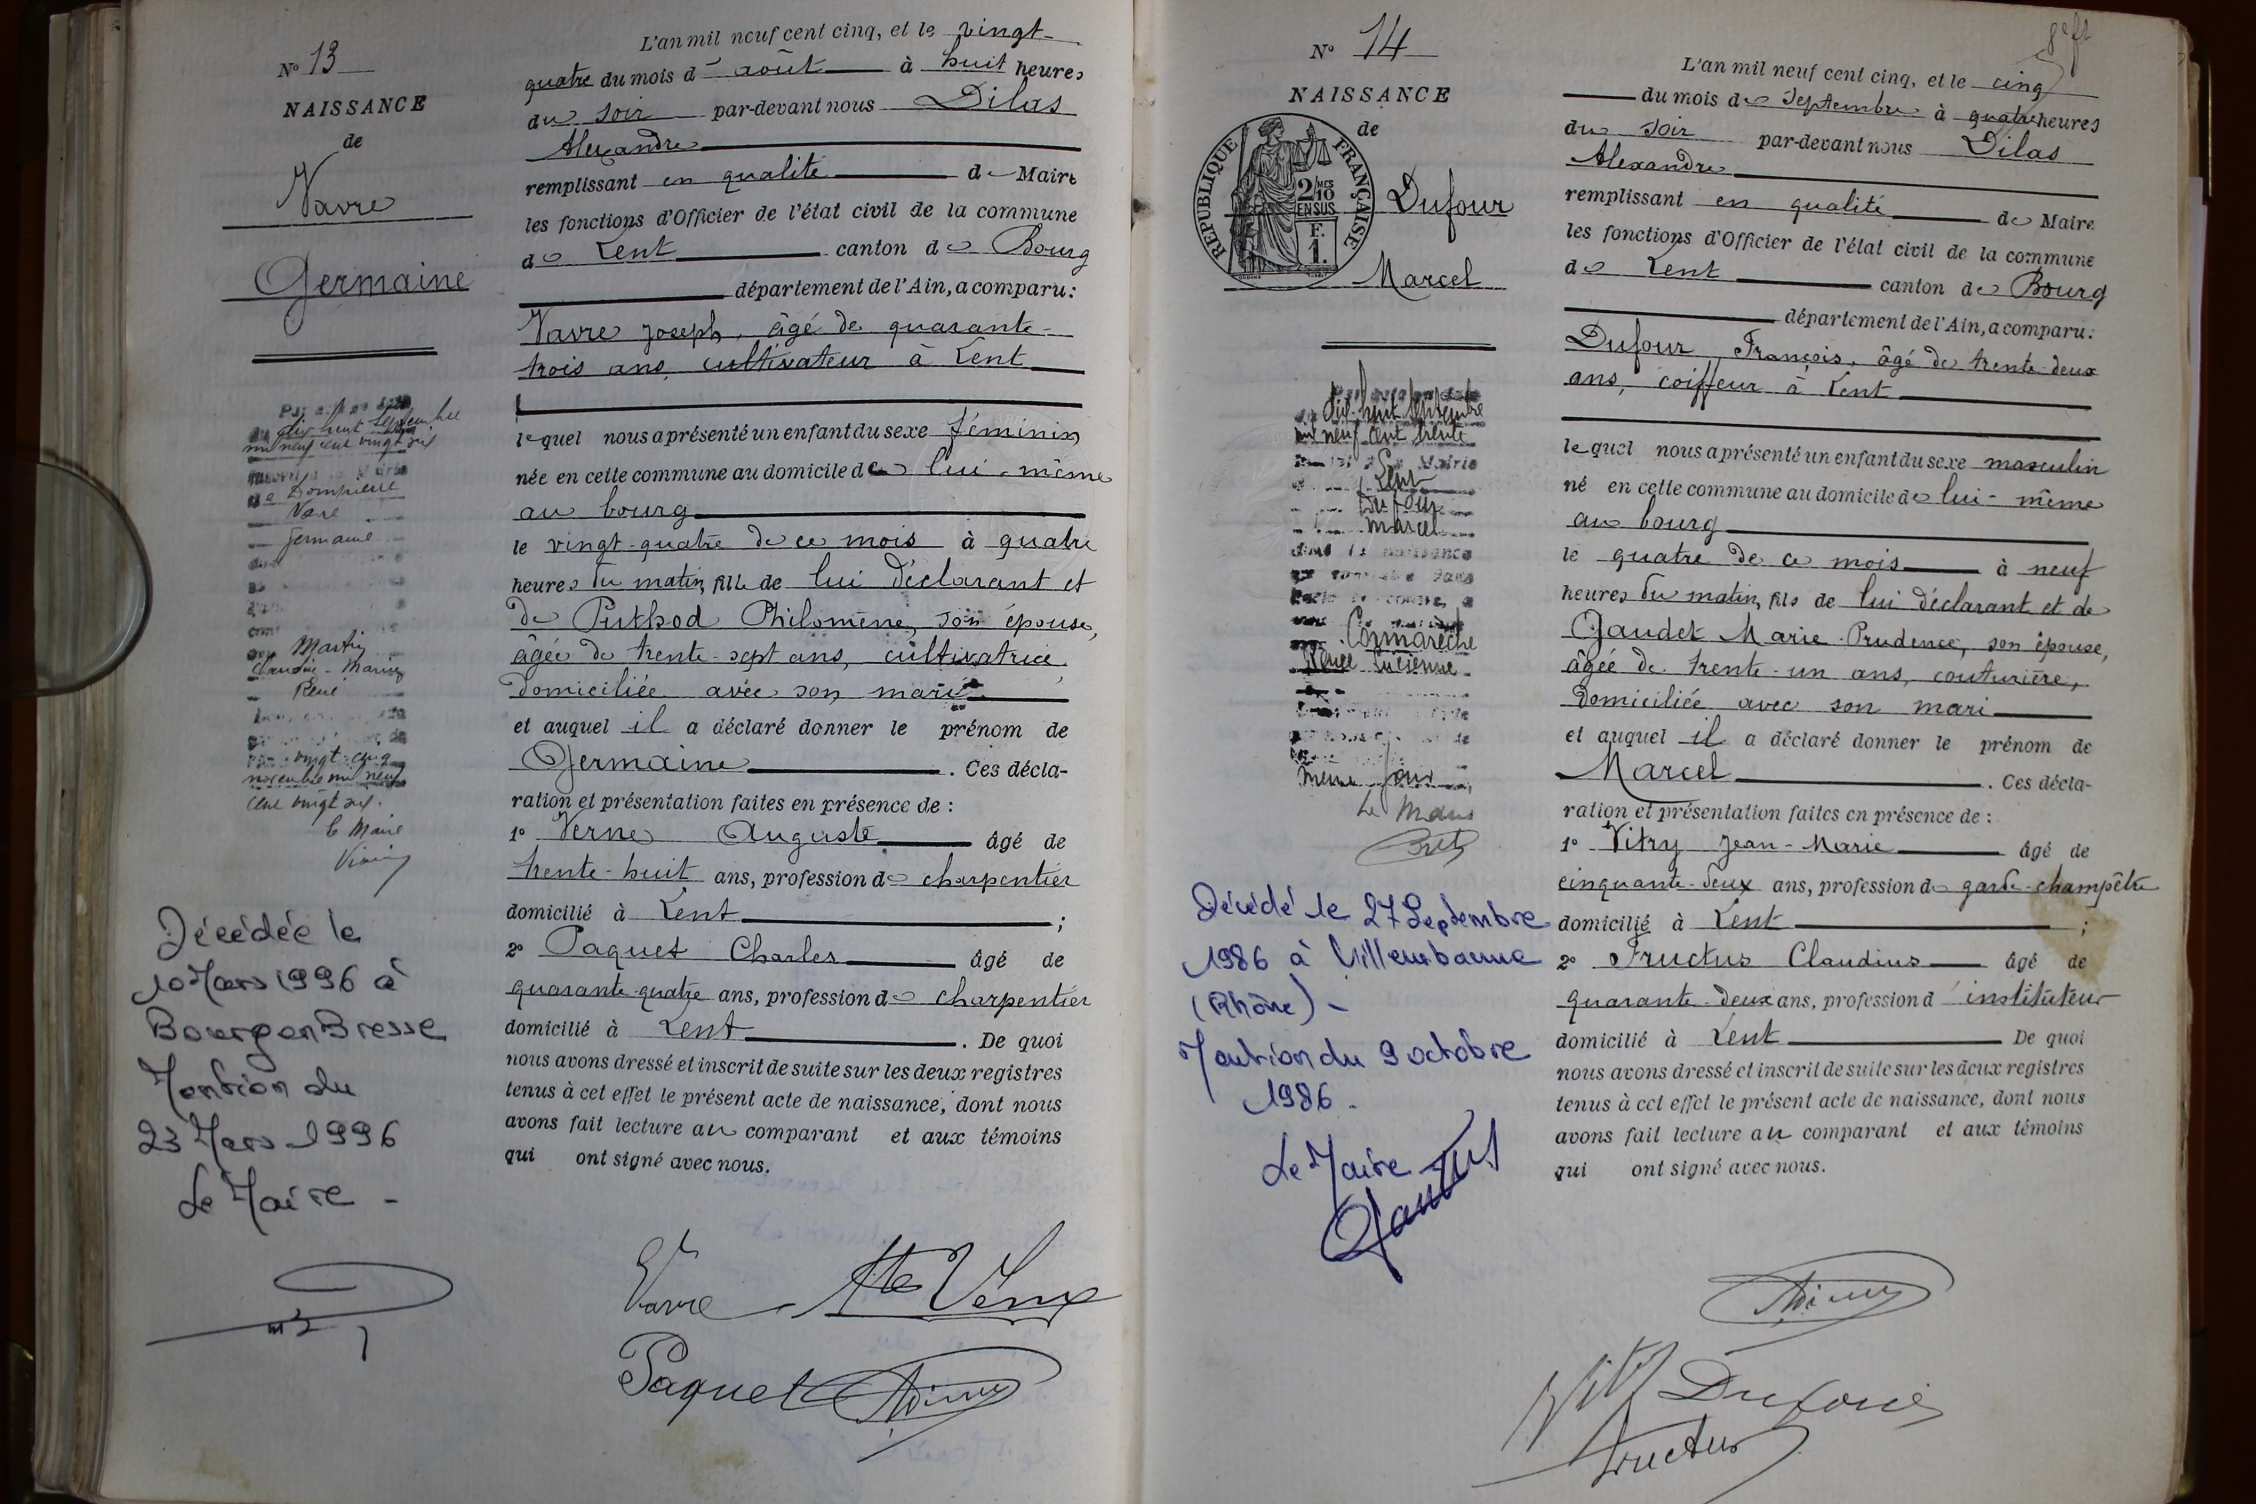 N° 13
NAISSANCE
de
Vavre
Germaine
dix huit Septembre
mil neuf cent vingt six
Mairie
de Dompierre
Vavre
Germaine
Martin
Claudius-Marius
René
vingt cinq
novembre mil neuf
cent vingt six.
le Maire
Décédée le
10 Mars 1996 à
Bourg en Bresse
Mention du
23 Mars 1996
Le Maire -
L'an mil neuf cent cinq, et le vingt-
quatre du mois d'août à huit heures
du soir par-devant nous Dilas
Alexandre
remplissant en qualité de Maire
les fonctions d'Officier de l'état civil de la commune
de Lent canton de Bourg
département de l'Ain, a comparu:
Vavre Joseph, âgé de quarante-
trois ans, cultivateur à Lent
lequel nous a présenté un enfant du sexe féminin
née en cette commune au domicile de lui-même
au bourg
le vingt-quatre de ce mois à quatre
heures du matin, fille de lui déclarant et
de Puthod Philomène, son épouse,
âgée de trente-sept ans, cultivatrice,
domiciliée avec son mari
et auquel il a déclaré donner le prénom de
Germaine. Ces décla-
ration et présentation faites en présence de :
1° Verne Auguste âgé de
trente-huit ans, profession de charpentier
domicilié à Lent ;
2° Paquet Charles âgé de
quarante-quatre ans, profession de charpentier
domicilié à Lent. De quoi
nous avons dressé et inscrit de suite sur les deux registres
tenus à cet effet le présent acte de naissance, dont nous
avons fait lecture au comparant et aux témoins
qui ont signé avec nous.
Vavre Ate Verne
Paquet
N° 14
NAISSANCE
de
REPUBLIQUE FRANÇAISE
2/10 MES
EN SUS
F.
1.
Dufour
Marcel
dix-huit Septembre
mil neuf cent trente
Mairie
Lent
Dufour
Marcel
Commarèche
Lucienne
même jour
Le Maire
Décédé le 27 Septembre
1986 à Villeurbanne
(Rhône) -
Mention du 9 octobre
1986 -
Le Maire
8e ft
L'an mil neuf cent cinq, et le cinq
du mois de Septembre à quatre heures
du soir par-devant nous Dilas
Alexandre
remplissant en qualité de Maire
les fonctions d'Officier de l'état civil de la commune
de Lent canton de Bourg
département de l'Ain, a comparu:
Dufour François, âgé de trente-deux
ans, coiffeur à Lent
lequel nous a présenté un enfant du sexe masculin
né en cette commune au domicile de lui-même
au bourg
le quatre de ce mois à neuf
heures du matin, fils de lui déclarant et de
Gaudet Marie-Prudence, son épouse,
âgée de trente-un ans, couturière,
domiciliée avec son mari
et auquel il a déclaré donner le prénom de
Marcel. Ces décla-
ration et présentation faites en présence de :
1° Vitry Jean-Marie âgé de
cinquante-deux ans, profession de garde-champêtre
domicilié à Lent ;
2° Fructus Claudius âgé de
quarante-deux ans, profession d'instituteur
domicilié à Lent De quoi
nous avons dressé et inscrit de suite sur les deux registres
tenus à cet effet le présent acte de naissance, dont nous
avons fait lecture au comparant et aux témoins
qui ont signé avec nous.
Vitry Dufour
Fructus